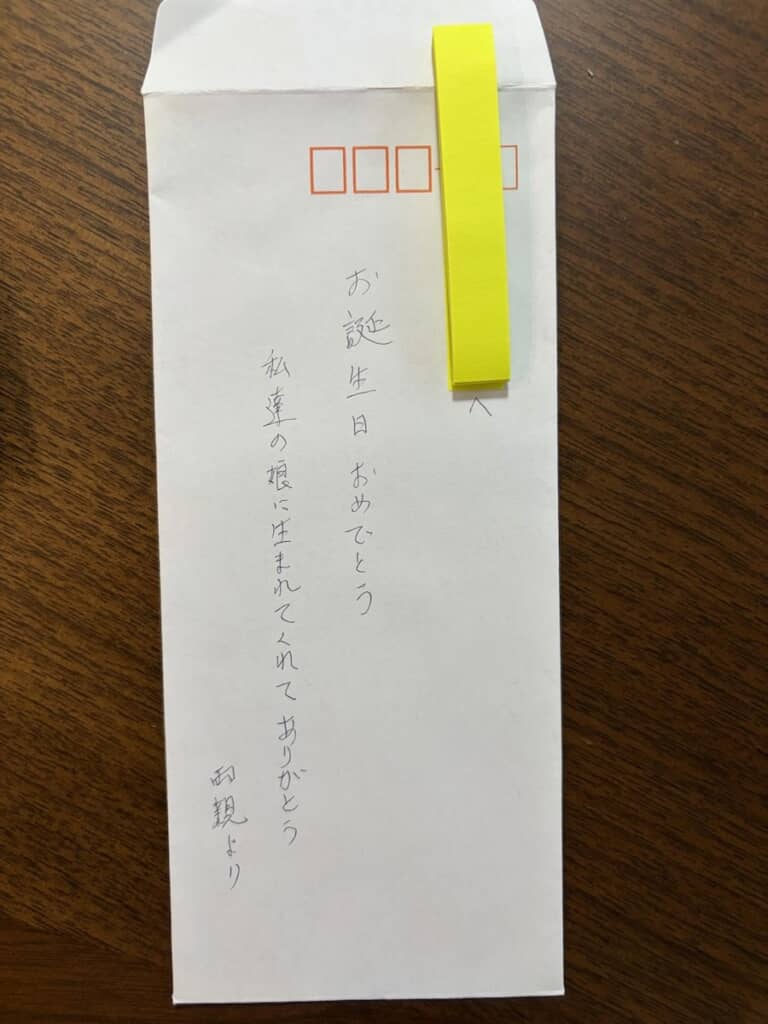 へ
お誕生日おめでとう
私達の娘に生まれてくれてありがとう
両親より